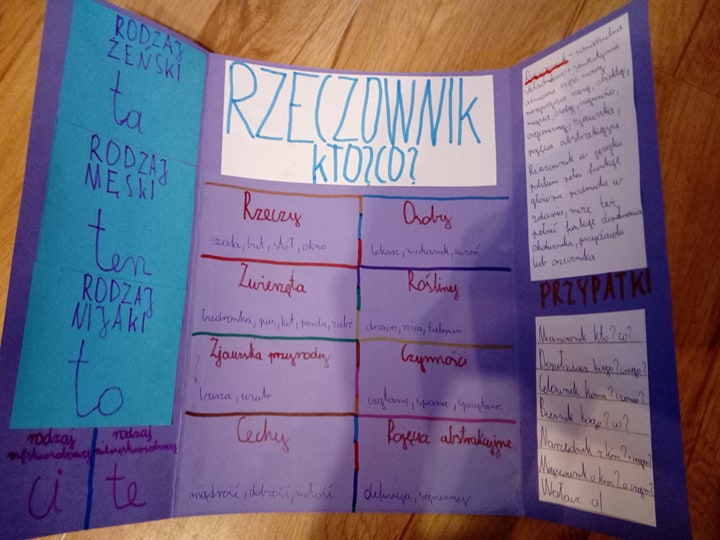 RODZAJ
ŻEŃSKI
ta
RODZAJ
MĘSKI
ten
RODZAJ
NIJAKI
to
rodzaj
męskoosobowy
ci
rodzaj
niemęskoosobowy
te
RZECZOWNIK
KTO?CO?
Rzeczy
szafa, but, stół, okno
Osoby
lekarz, mechanik, uczeń
Zwierzęta
biedronka, pies, kot, panda, żubr
Rośliny
drzewo, róża, tulipan
Zjawiska przyrody
burza, wiatr
Czynności
czytanie, spanie, sprzątanie
Cechy
mądrość, dobroć, miłość
Pojęcia abstrakcyjne
definicja,
Rzeczownik - samodzielna
składniowo, semantycznie
odmienna część mowy
nazywająca rzeczy, obiekty,
miejsca, osoby, czynności,
organizmy, zjawiska,
pojęcia abstrakcyjne
Rzeczownik w języku
polskim pełni funkcję
głównie podmiotu w
zdaniu, może też
pełnić funkcję dopełnienia
okolicznika, przydawki
lub orzecznika
PRZYPATKI
Mianownik kto? co?
Dopełniacz kogo? czego?
Celownik komu? czemu?
Biernik kogo? co?
Narzędnik z kim? z czym?
Miejscownik o kim? o czym?
Wołacz o!